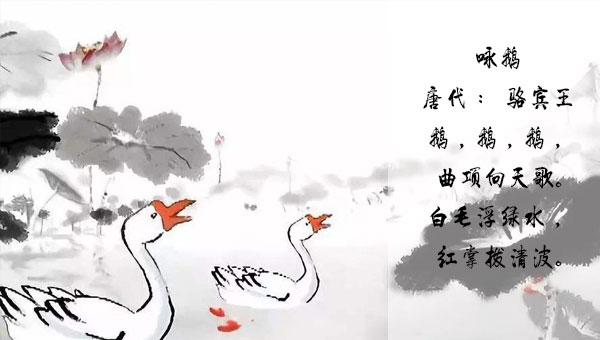 咏鹅
唐代：骆宾王
鹅，鹅，鹅，
曲项向天歌。
白毛浮绿水，
红掌拨清波。